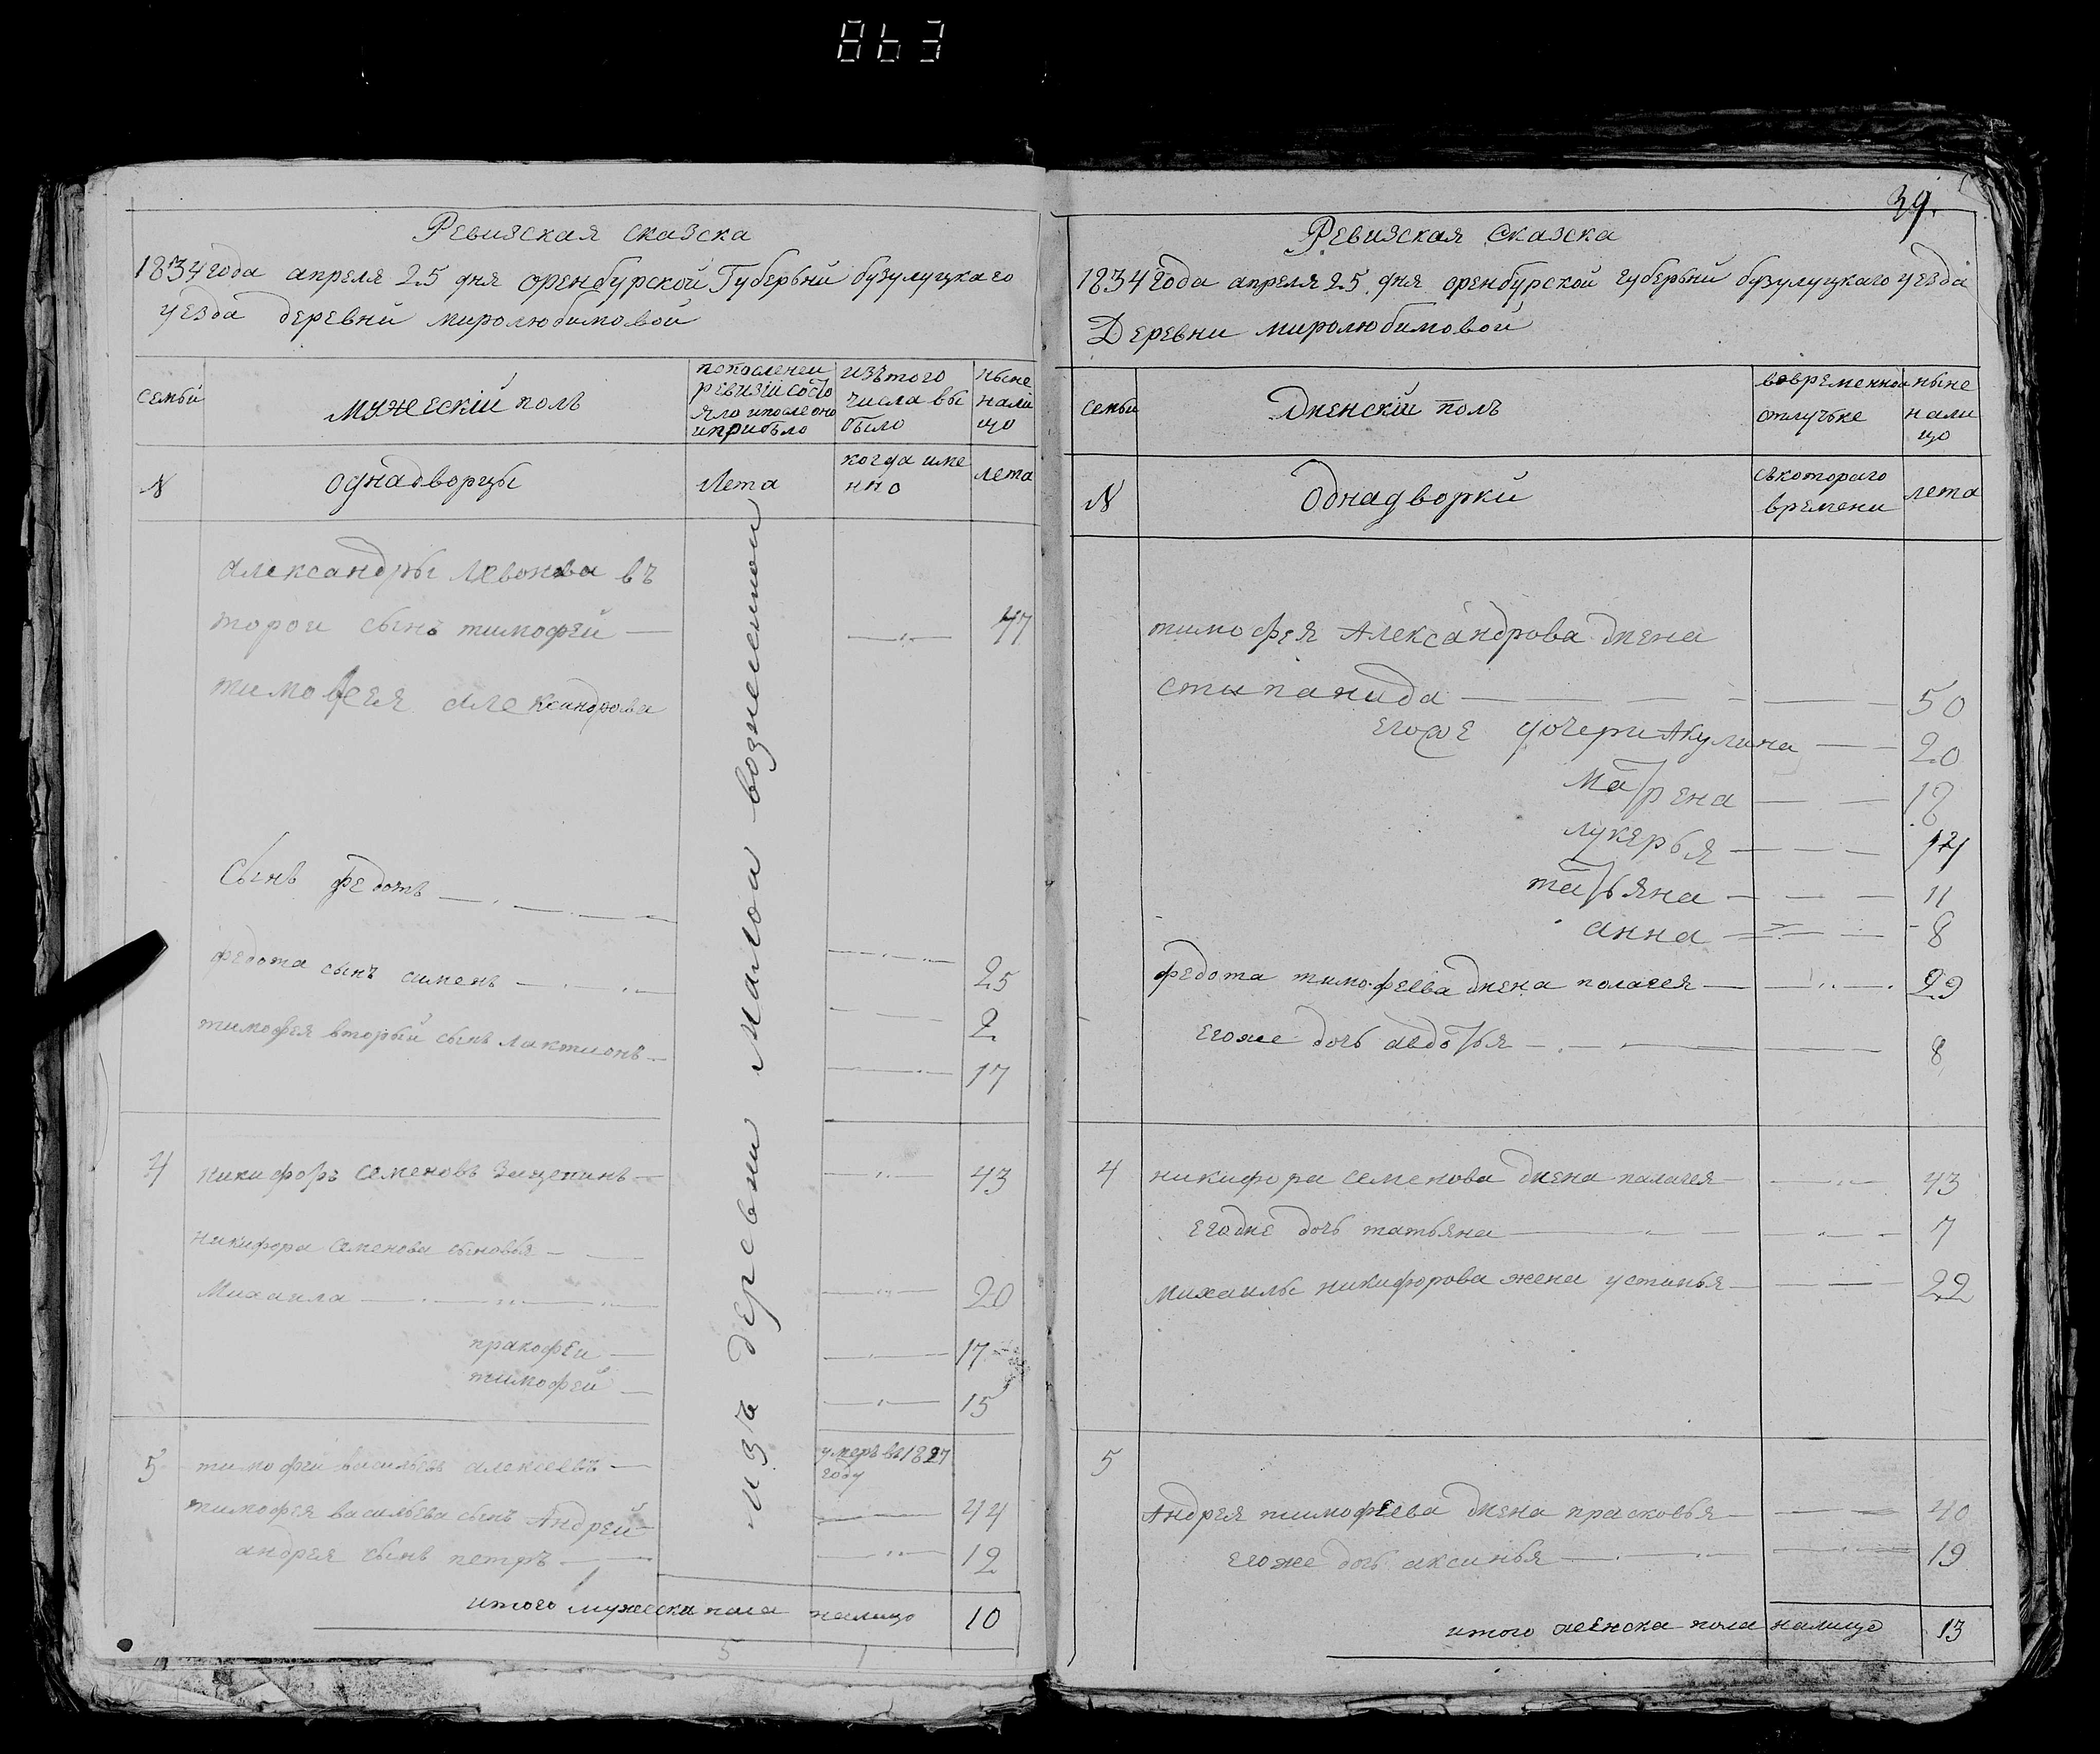 863
Ревизская сказска
1834 года апреля 25 дня оренбурской Губерьни бузулуцкаго
уезда деревни миролюбимовой
семьи
мужескій полъ
попоследнеи ревизіи состояло ипосле оно иприбыло
изътого числа выбыло
ныне налицо
№
однадворцы
Лета
когда именно
лета
изъ деревни малои вознесенскои
Александры Левонова въ
торои сынъ тимофей — 47
тимофея Александрова
Сынъ федотъ — 25
федота сынъ сименъ — 2
тимофея вторый сынъ Лактионъ — 17
4 никифоръ семеновъ Защепинъ — 43
никифора семенова сыновья —
Михаила — 20
пракофеи — 17
тимофей — 15
5 тимофеи васильевъ алексеевъ — умеръ въ 1827 году
тимофея васильева сынъ Андрей — 44
андрея сынъ петръ — 12
итого мужеска пола налицо 10
5 1
39.
Ревизская Сказска
1834 года апреля 25 дня оренбурской губерьни бузулуцкаго уезда
Деревни миролюбимовой
семьи
Женскій полъ
вовременной отлучке
ныне налицо
№
Однадворки
съкотораго времени
лета
тимофея Александрова жена
стипанида — 50
егоже дочери Акулина — 20
Матрена — 18
лукерья — 14
татьяна — 11
анна — 8
федота тимофеева жена полагея — 29
егоже дочь авдотья — 8
4 никифора семенова жена палагея — 43
егоже дочь татьяна — 7
михаилы никифорова жена устинья — 22
5
Андрея тимофеева жена прасковья — 40
егоже дочь аксинья — 19
итого женска пола налицо 13